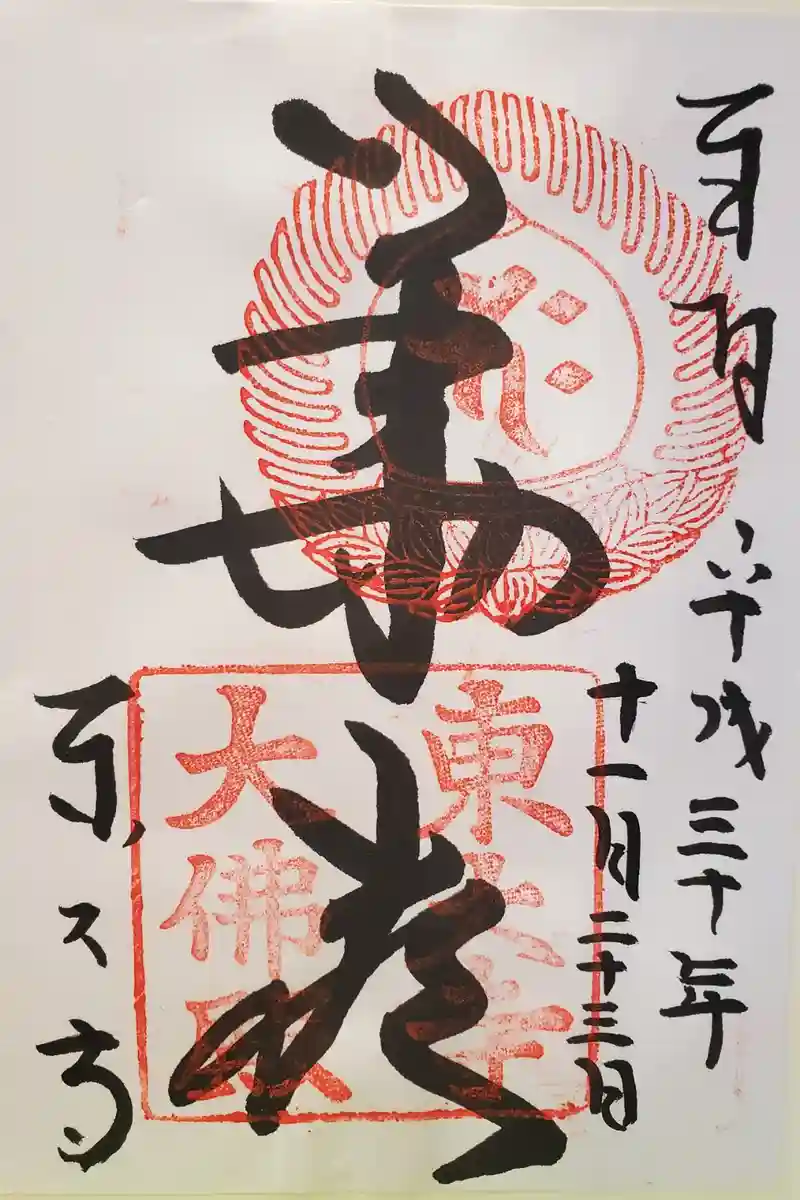 奉拝 平成三十年
十一月二十三日
華厳
東大寺
大佛殿
東大寺